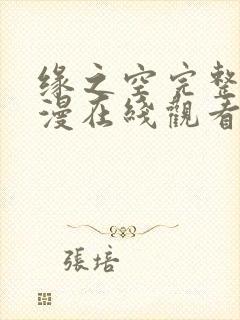 缘之空完整
漫在綫觀看
張培